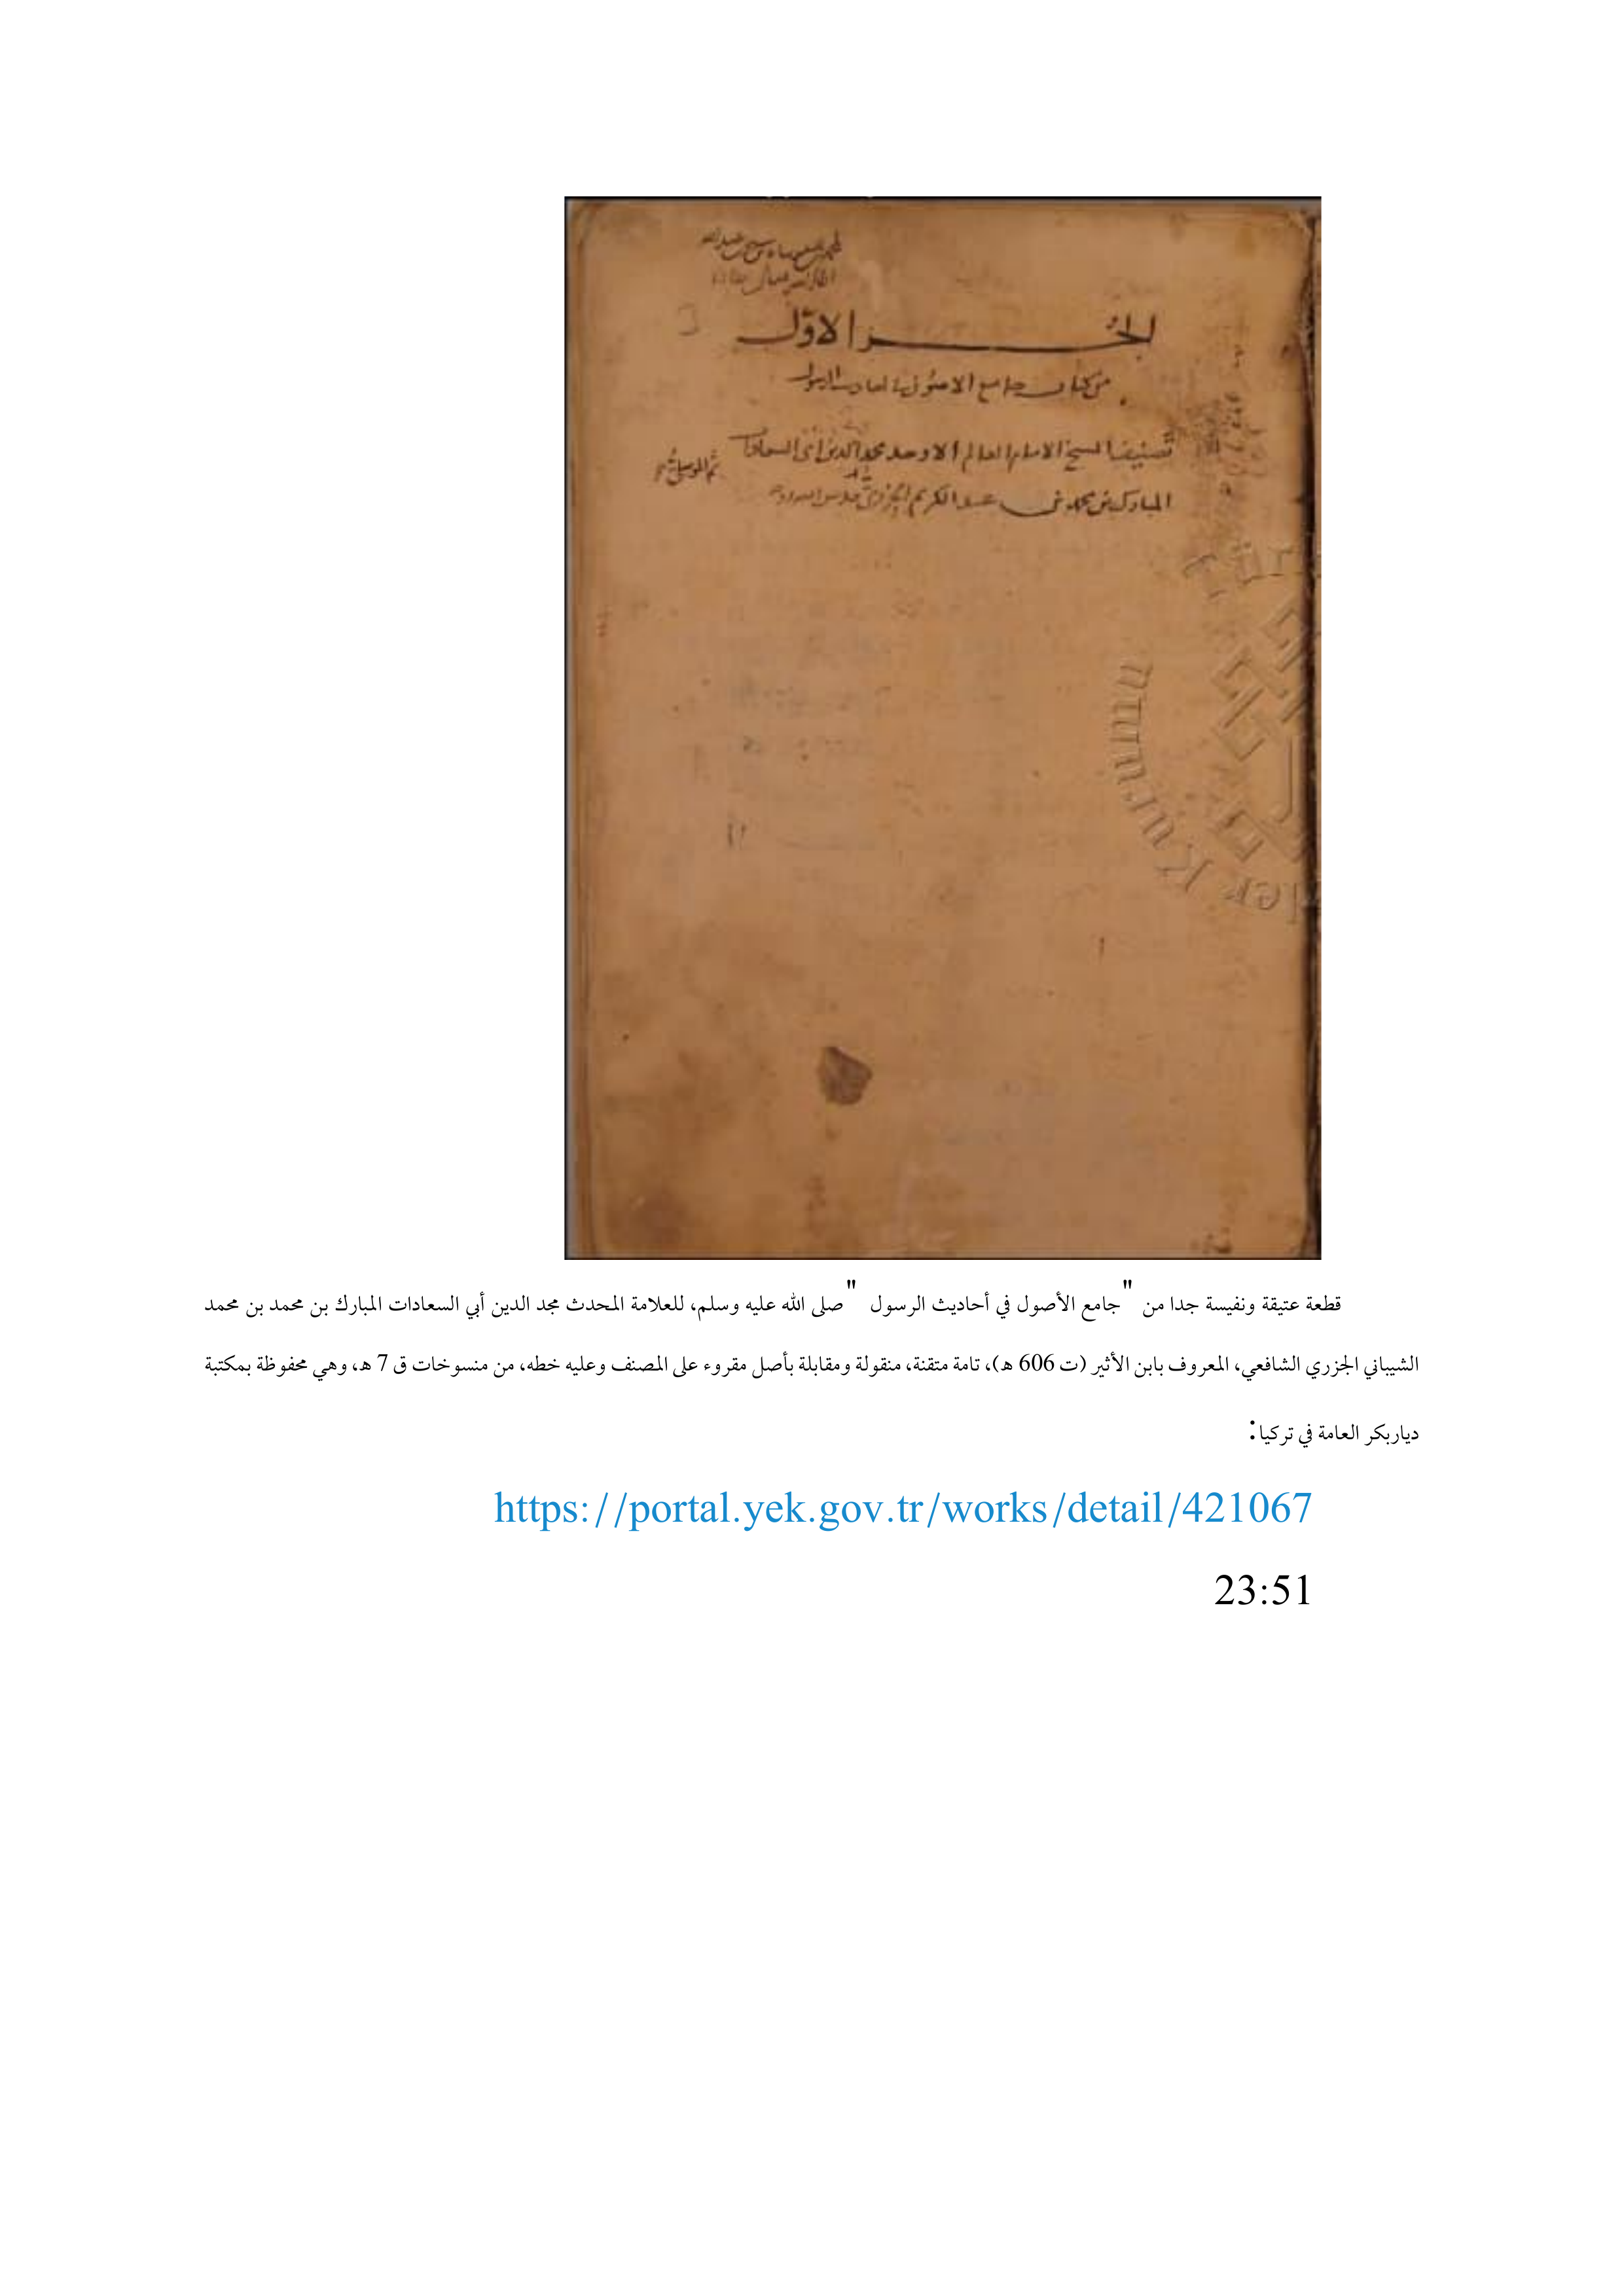 الجزء الاول
من كتاب جامع الاصول في احاديث الرسول
تصنيف الشيخ الامام العالم الاوحد مجد الدين ابي السعادات
المبارك بن محمد بن عبد الكريم الجزري ثم الموصلي
قطعة عتيقة ونفيسة جدا من "جامع الأصول في أحاديث الرسول " صلى الله عليه وسلم، للعلامة المحدث مجد الدين أبي السعادات المبارك بن محمد بن محمد
الشيباني الجزري الشافعي، المعروف بابن الأثير (ت 606 هـ)، تامة متقنة، منقولة ومقابلة بأصل مقروء على المصنف وعليه خطه، من منسوخات ق 7 هـ، وهي محفوظة بمكتبة
دياربكر العامة في تركيا:
https://portal.yek.gov.tr/works/detail/421067
23:51